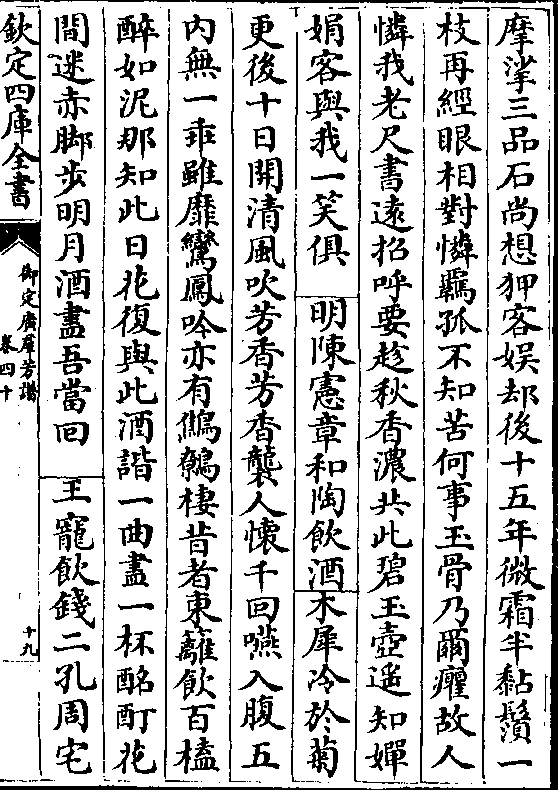 摩挲三品石尚想狎客娱却後十五年微霜半黏鬚一
枝再經眼相對憐羈孤不知苦何事玉骨乃爾癯故人
憐我老尺書遠招呼要趁秋香濃共此碧玉壺遥知嬋
娟客與我一笑俱 明陳憲章和陶飲酒 木犀冷於菊
更後十日開清風吹芳香芳香襲人懷千回嚥入腹五
内無一乖雖靡鸞鳳吟亦有鷦鷯棲昔者東籬飲百榼
醉如泥那知此日花復與此酒諧一曲盡一杯酩酊花
間迷赤脚步明月酒盡吾當回 王寵飲錢二孔周宅
欽定四庫全書
御定廣羣芳譜
卷四十
十九